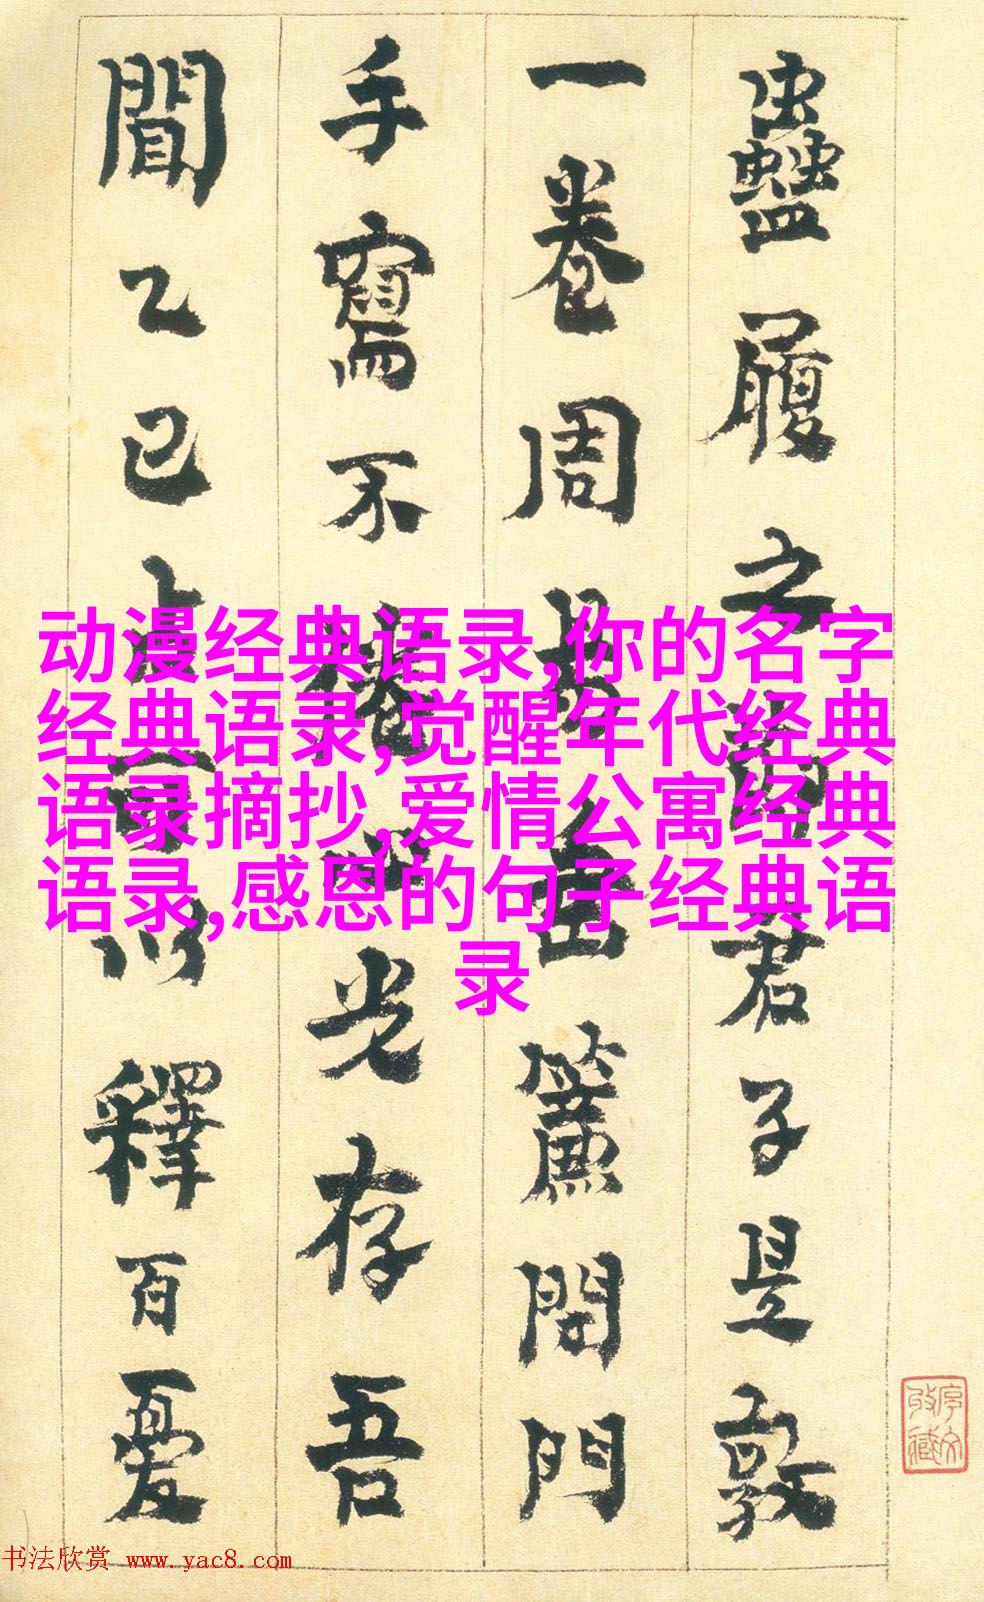 蠱履之君子是敦
一卷周易垂簾門
手寫不存吾
聞乙巳占可以釋百憂
动漫经典语录,你的名字
经典语录,觉醒年代经典
语录摘抄,爱情公寓经典
语录,感恩的句子经典语
录
书法欣赏 www.yac8.com